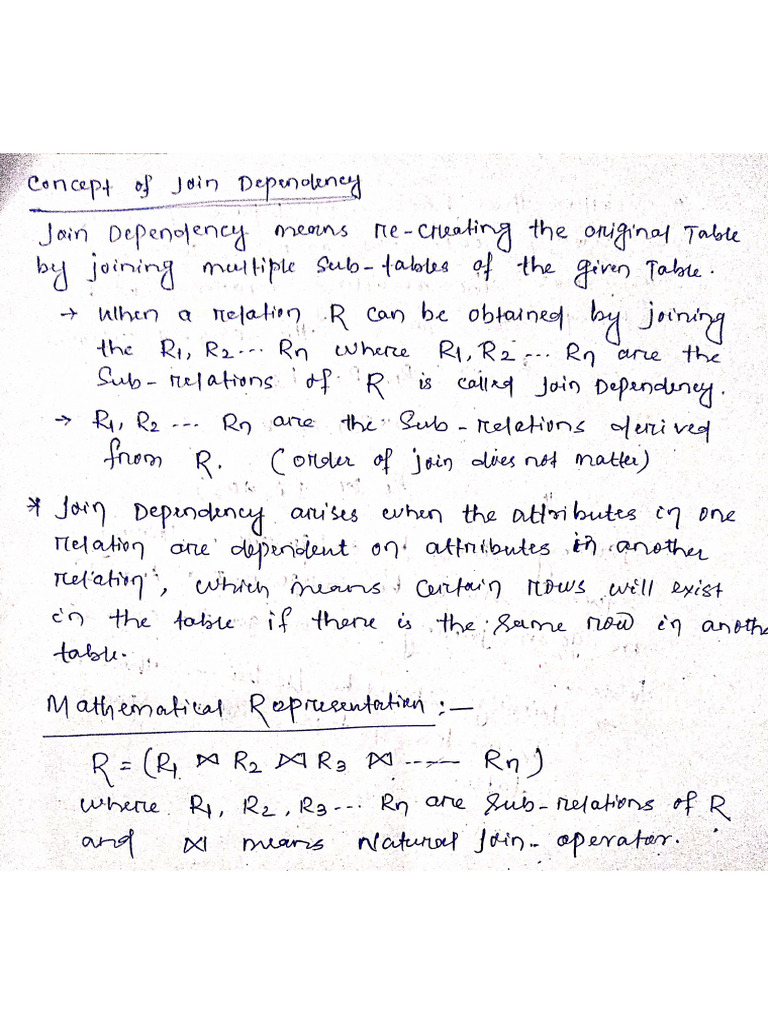 Concept of Join Dependency
Join Dependency means re-creating the original Table
by joining multiple Sub-tables of the given Table.
→ When a relation R can be obtained by joining
the R1, R2... Rn where R1, R2... Rn are the
Sub-relations of R is called Join Dependency.
→ R1, R2 ... Rn are the Sub-relations derived
from R. (order of join does not matter)
* Join Dependency arises when the attributes in one
relation are dependent on attributes in another
relation, which means certain rows will exist
in the table if there is the same row in anothe
table.
Mathematical Representation :-
R = (R1 ⋈ R2 ⋈ R3 ⋈ ----- Rn)
where R1, R2, R3... Rn are Sub-relations of R
and ⋈ means Natural Join- operator.